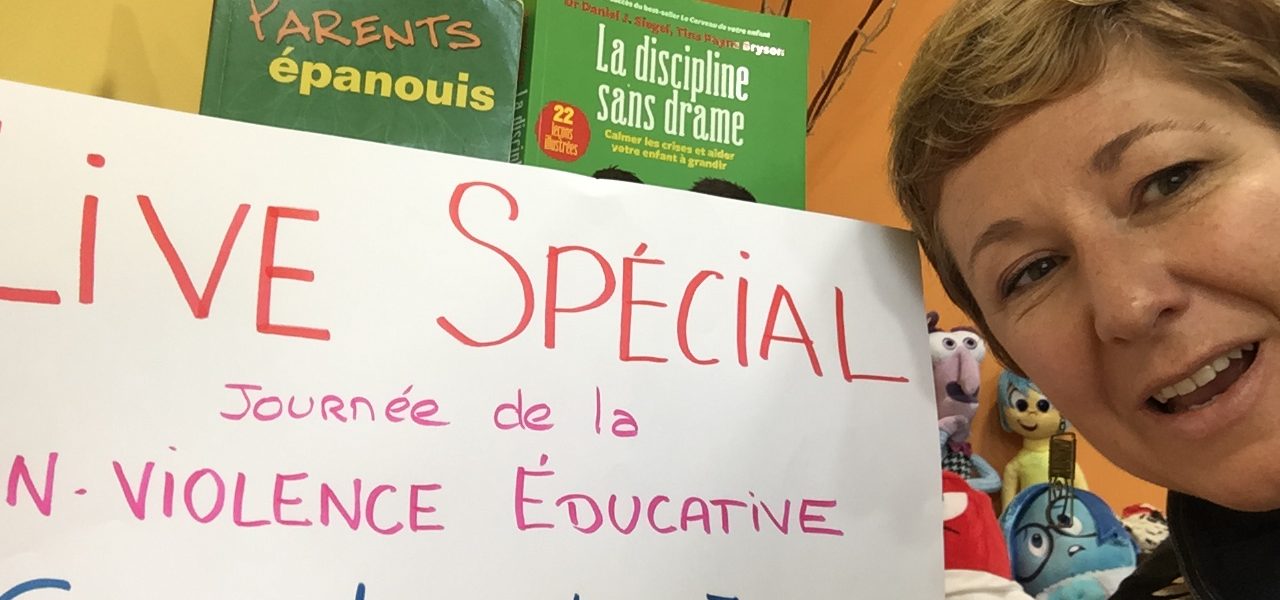 PARENTS
épanouis
succès du best-seller Le Cerveau de votre enfant
Dr Daniel J. Siegel, Tina Payne Bryson
La discipline
sans drame
22
leçons
illustrées
Calmer les crises et aider
votre enfant à grandir
LiVE SPÉCiAL
JOURNée de la
N-ViOLENCE ÉDUCATiVE